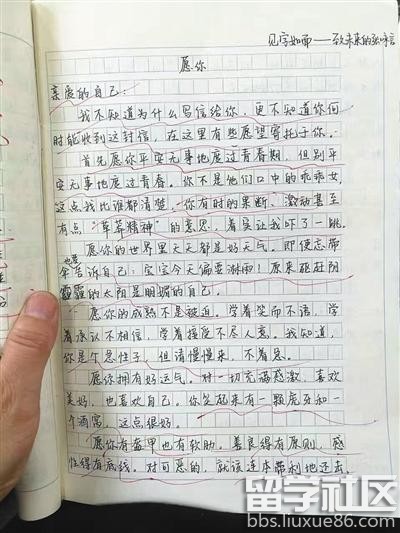 见字如面——致未来的张味言
愿你
亲爱的自己：
我不知道为什么写信给你，更不知道你何
时能收到这封信，在这里有些愿望寄托于你。
首先愿你平安无事地度过青春期，但别平
安无事地度过青春。你不是他们口中的乖乖女，
这点我比谁都清楚。你有时的果断、激动甚至
有点“草莽精神”的意思，着实让我吓了一跳。
愿你的世界里天天都是好天气。即便忘带
也要
伞告诉自己：宝宝今天偏要淋雨！原来驱赶阴
霾的太阳是明媚的自己。
愿你的成熟不是被迫。学着笑而不语，学
着承认不相信，学着接受不尽人意。我知道，
你是个急性子，但请慢慢来，不着急。
愿你拥有好运气。对一切充满感激，喜欢
美好，也喜欢自己。你笑起来有一颗虎牙和一
个酒窝，这点很好。
愿你有盔甲也有软肋。善良得有原则，感
性得有底线。对可恶的，就该连本带利地还击，
留学社区
bbs.liuxue86.com